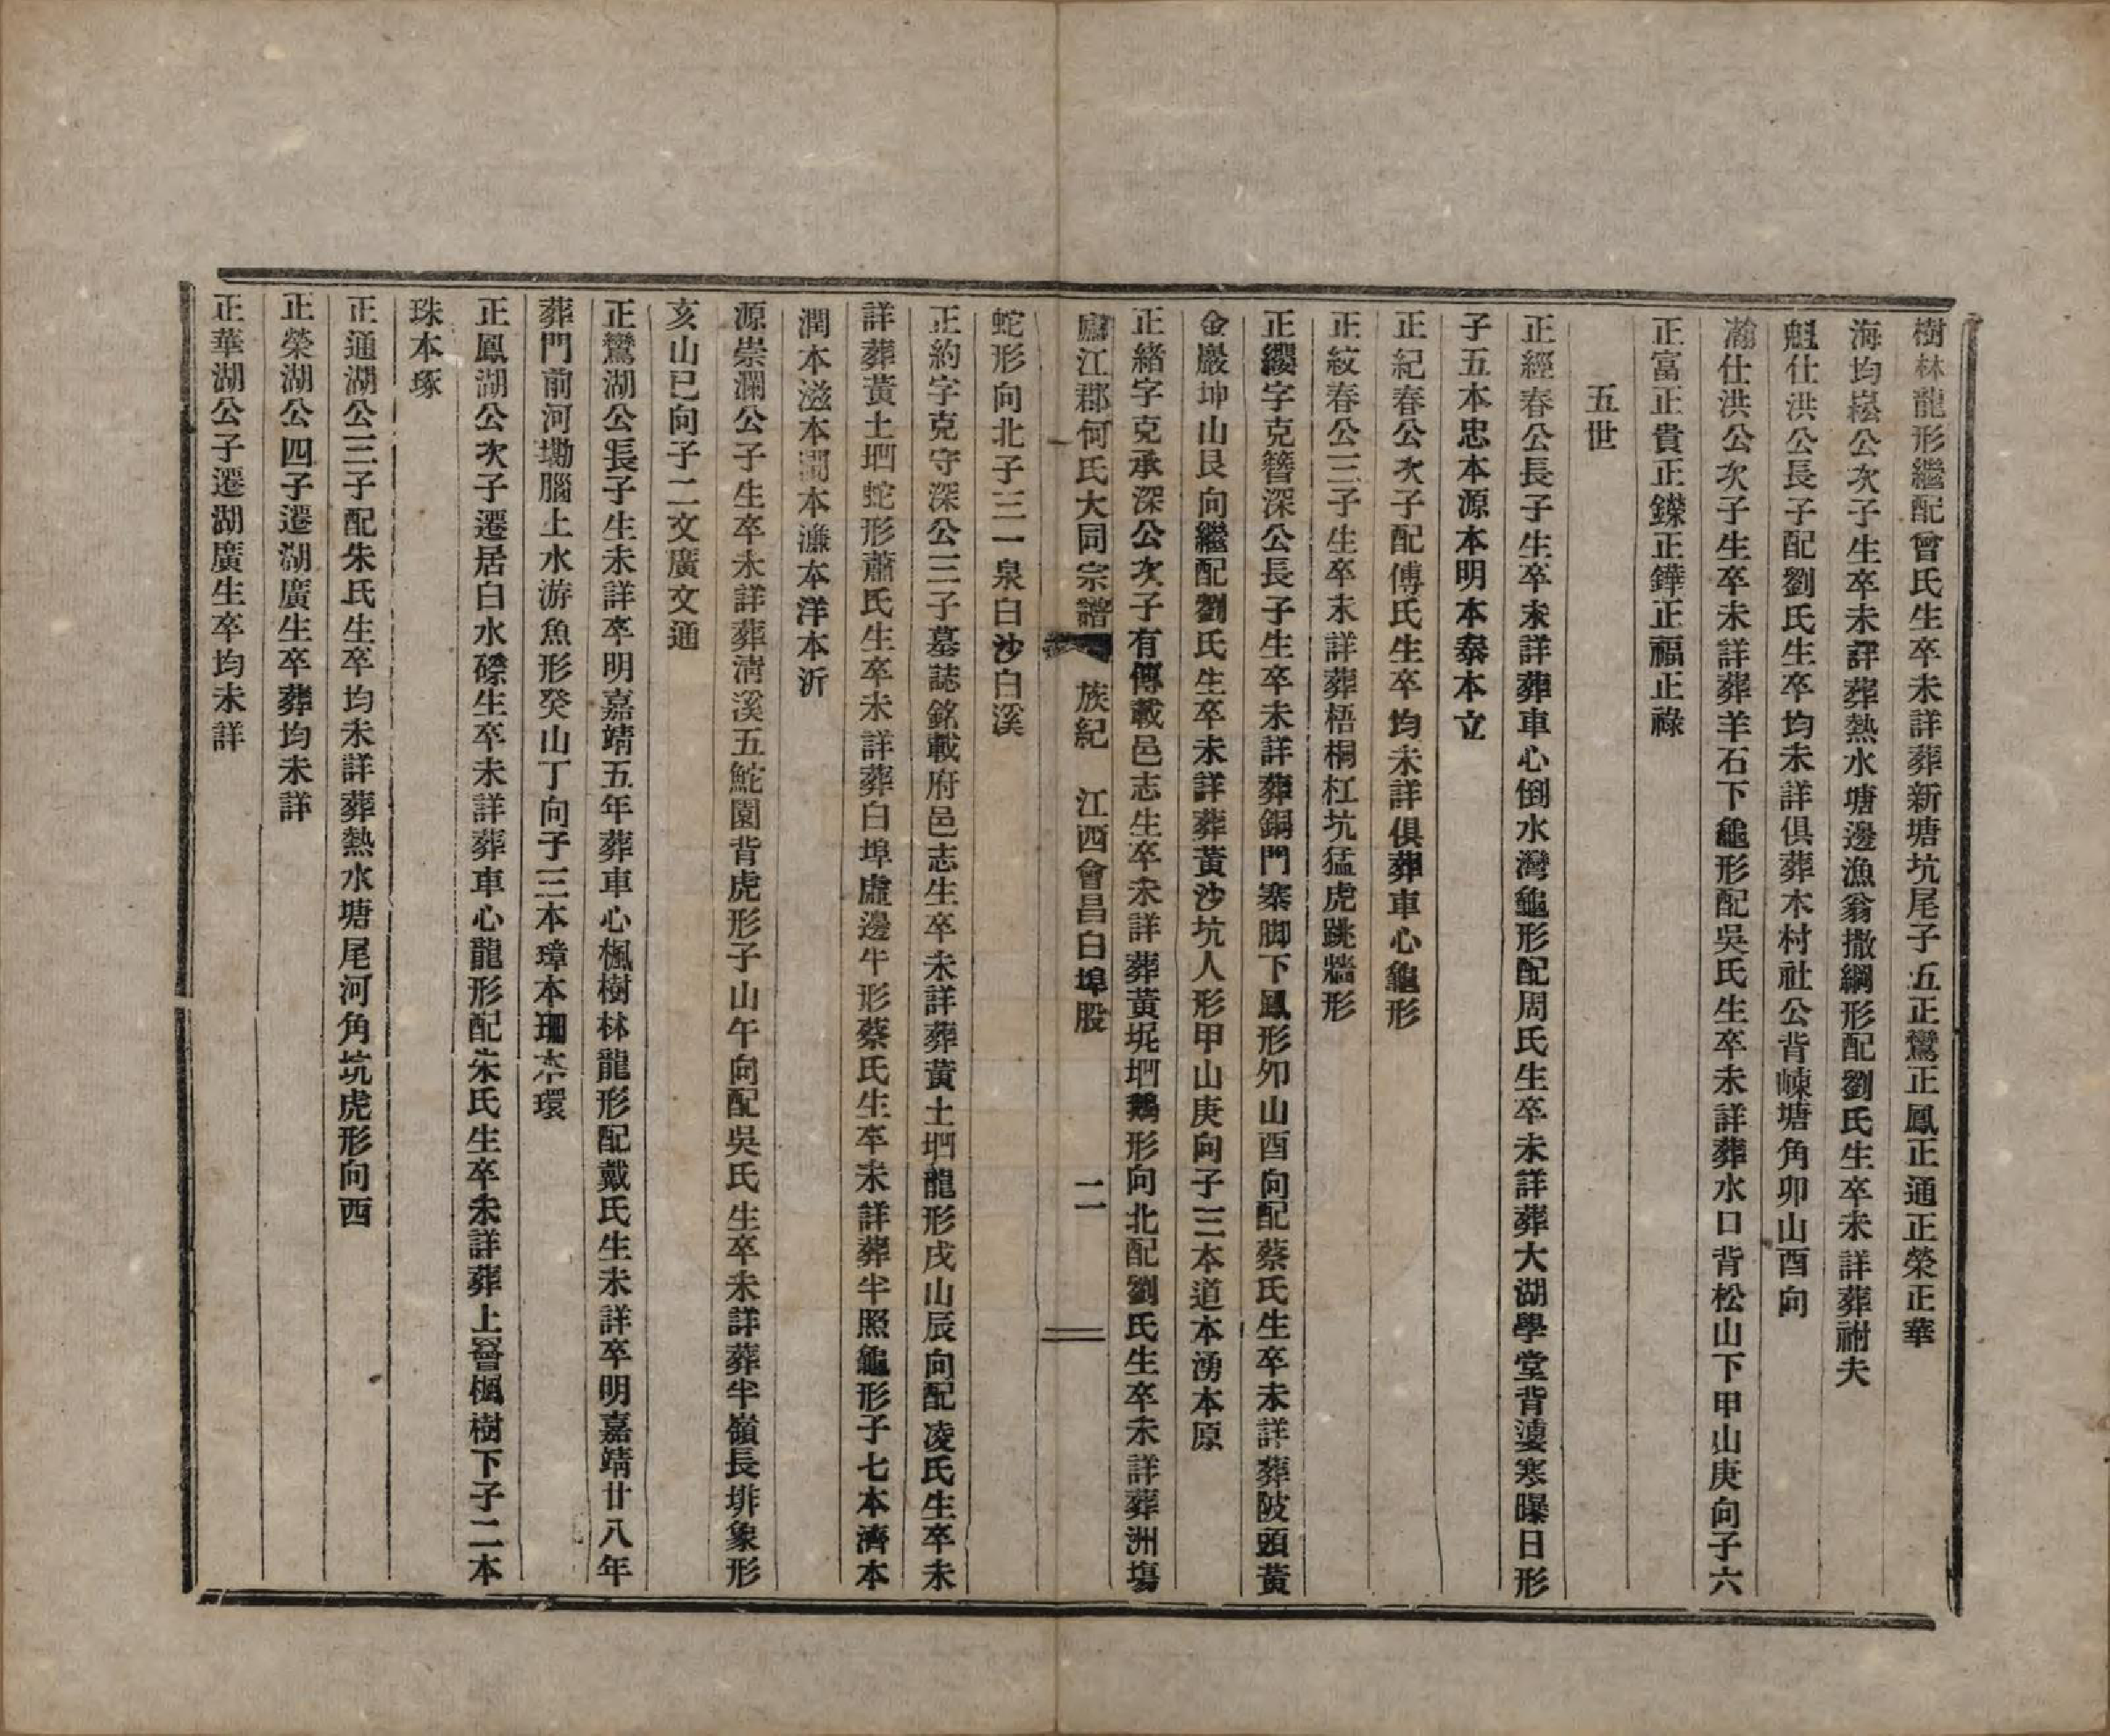 樹林龍形繼配曾氏生卒未詳葬新塘坑尾子五正鸞正鳳正通正榮正華
海均崧公次子生卒未詳葬熱水塘邊漁翁撒綱形配劉氏生卒未詳葬祔夫
魁仕洪公長子配劉氏生卒均未詳俱葬木村社公背崠塘角卯山酉向
瀚仕洪公次子生卒未詳葬羊石下龜形配吳氏生卒未詳葬水口背松山下甲山庚向子六
正富正貴正鑅正鏵正福正祿
五世
正經春公長子生卒未詳葬車心倒水灣龜形配周氏生卒未詳葬大湖學堂背漊寒曝日形
子五本忠本源本明本泰本立
正紀春公次子配傅氏生卒均未詳俱葬車心龜形
正紋春公三子生卒未詳葬梧桐杠坑猛虎跳牆形
正纓字克簪深公長子生卒未詳葬銅門寨脚下鳳形卯山酉向配蔡氏生卒未詳葬陂頭黃
金嚴坤山艮向繼配劉氏生卒未詳葬黃沙坑人形甲山庚向子三本道本湧本原
正緒字克承深公次子有傳載邑志生卒未詳葬黃坭垇鵝形向北配劉氏生卒未詳葬洲塲
廬江郡何氏大同宗譜 族紀 江西會昌白埠股 二
蛇形向北子三一泉白沙白溪
正約字克守深公三子墓誌銘載府邑志生卒未詳葬黃土垇龍形戌山辰向配凌氏生卒未
詳葬黃土垇蛇形蕭氏生卒未詳葬白埠虛邊牛形蔡氏生卒未詳葬半照龜形子七本濟本
潤本滋本澗本濂本洋本沂
源崇瀾公子生卒未詳葬淸溪五鮀園背虎形子山午向配吳氏生卒未詳葬半嶺長排象形
亥山巳向子二文廣文通
正鸞湖公長子生未詳卒明嘉靖五年葬車心楓樹林龍形配戴氏生未詳卒明嘉靖廿八年
葬門前河墈腦上水游魚形癸山丁向子三本璋本珊本環
正鳳湖公次子遷居白水磜生卒未詳葬車心龍形配朱氏生卒未詳葬上嶜楓樹下子二本
珠本琢
正通湖公三子配朱氏生卒均未詳葬熱水塘尾河角坑虎形向西
正榮湖公四子遷湖廣生卒葬均未詳
正華湖公子遷湖廣生卒均未詳